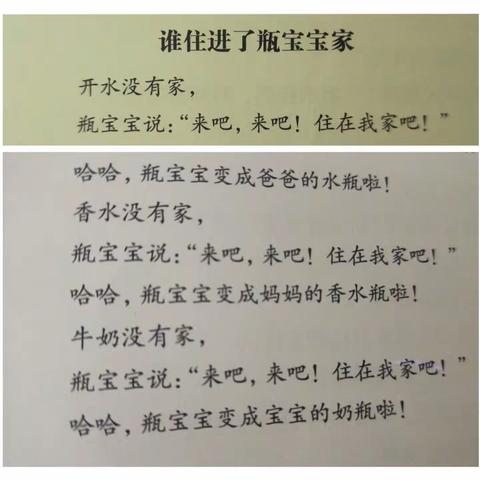 谁住进了瓶宝宝家
开水没有家，
瓶宝宝说：“来吧，来吧！住在我家吧！”
哈哈，瓶宝宝变成爸爸的水瓶啦！
香水没有家，
瓶宝宝说：“来吧，来吧！住在我家吧！”
哈哈，瓶宝宝变成妈妈的香水瓶啦！
牛奶没有家，
瓶宝宝说：“来吧，来吧！住在我家吧！”
哈哈，瓶宝宝变成宝宝的奶瓶啦！